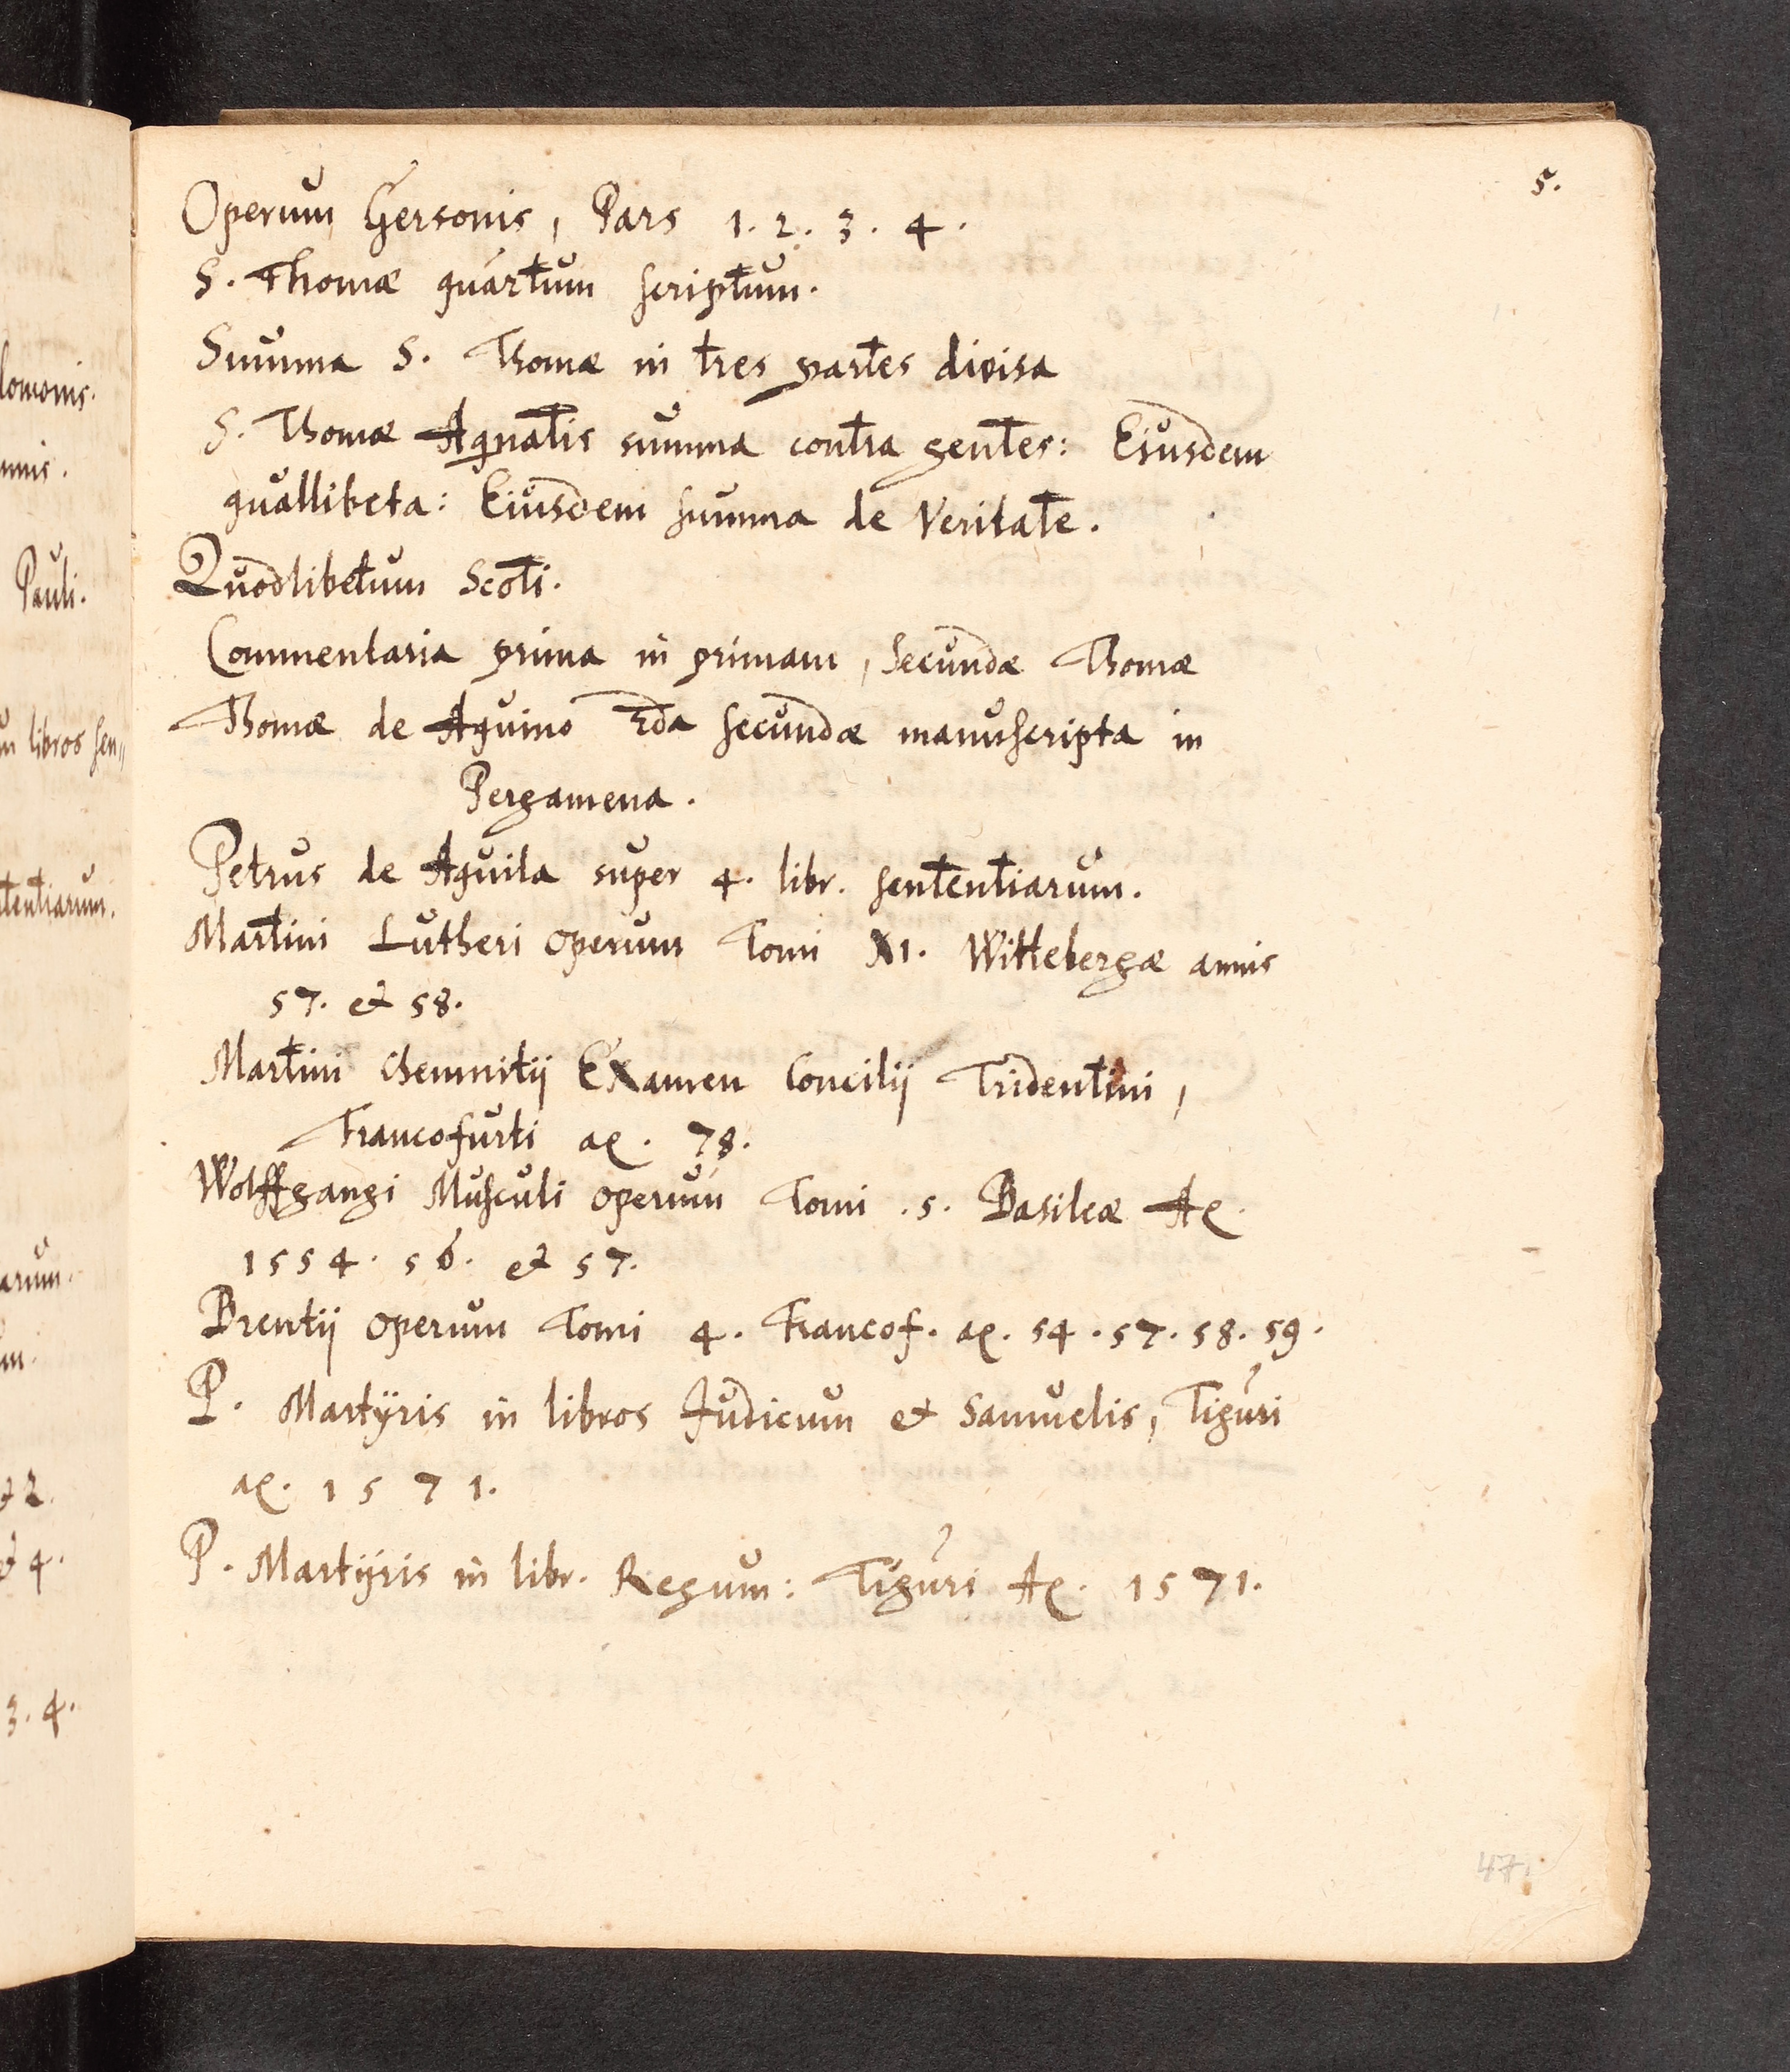 5.
Operum Gersonis, Pars 1. 2. 3. 4.
S. Thomæ quartum scriptum.
Summa S. Thomæ in tres partes divisa
S. Thomæ Aqnatis summa contra gentes: Eiusdem
quallibeta: Eiusdem summa de Veritate.
Quodlibetum Scoti.
Commentaria prima in primam, secundæ Thomæ
Thomæ de Aquino 2da secundæ manuscripta in
Pergamena.
Petrus de Aquila super 4. libr. sententiarum.
Martini Lutheri operum Tomi XI. Wittebergæ annis
57. et 58.
Martini Chemnitii Examen Concilii Tridentini,
Francofurti aº. 78.
Wolffgangi Musculi operum Tomi .5. Basileæ Aº.
1554. 56. et 57.
Brentii operum Tomi 4. Francof. aº. 54. 57. 58. 59.
P. Martyris in libros Judicum et Samuelis, Tiguri
aº. 1571.
P. Martyris in libr. Regum: Tiguri Aº. 1571.
47.
lomonis.
Pauli.
libros sen
tentiarum.
arum.
et 2.
et 4.
3. 4.